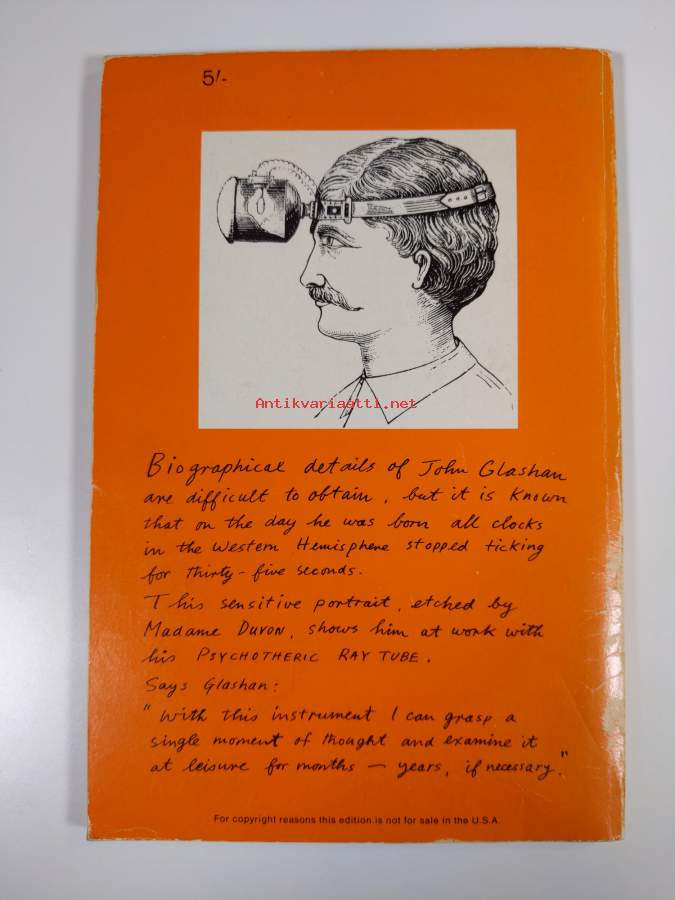 5/-
Antikvariaatti.net
Biographical details of John Glashan
are difficult to obtain, but it is known
that on the day he was born all clocks
in the Western Hemisphere stopped ticking
for thirty-five seconds.
This sensitive portrait, etched by
Madame DUVON, shows him at work with
his PSYCHOTHERIC RAY TUBE.
Says Glashan:
"With this instrument I can grasp a
single moment of thought and examine it
at leisure for months — years, if necessary."
For copyright reasons this edition is not for sale in the U.S.A.